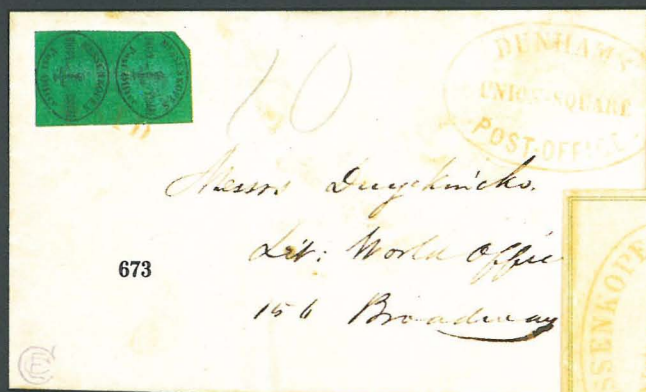 10
DUNHAM'S
UNION-SQUARE
POST-OFFICE
Messrs Duyckincks.
Lit: World Office
156 Broadway
673
SSENKOPF